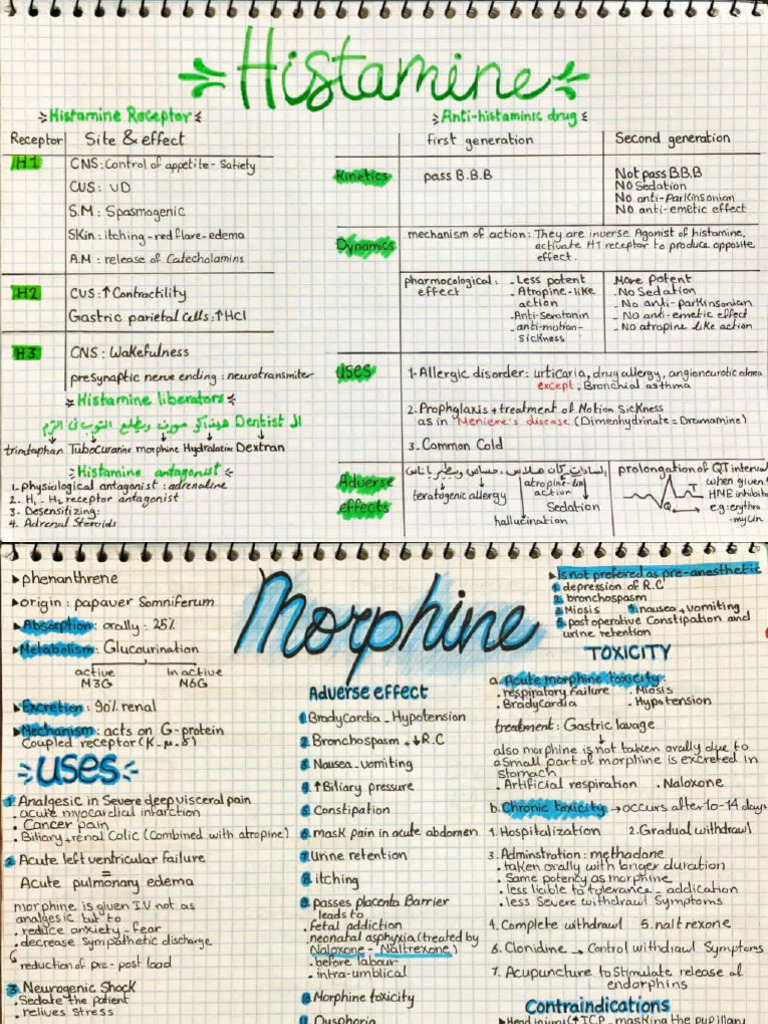 Histamine
Histamine Receptor
Receptor Site & effect
H1
CNS: Control of appetite - Satiety
CUS: VD
S.M: Spasmogenic
Skin: itching - red flare - edema
A.M: release of Catecholamins
H2
CUS: ↑ Contractility
Gastric parietal Cells: ↑HCl
H3
CNS: Wakefulness
presynaptic nerve ending: neurotransmiter
Histamine liberators
Dentist
trimtaphan Tubocurarine morphine Hydralatin Dextran
Histamine antagonist
1. physiological antagonist: adrenaline
2. H1 - H2 receptor antagonist
3. Desensitizing:
4. Adrenal Steroids
Anti-histaminic drug
first generation Second generation
Kinetics
pass B.B.B
Not pass B.B.B
NO Sedation
No anti-parkinsonian
No anti-emetic effect
Dynamics
mechanism of action: They are inverse Agonist of histamine,
activate H1 receptor to produce opposite
effect.
pharmacological effect:
- Less potent
- Atropine-like action
- Anti-Serotonin
- anti-motion-sickness
More Potent
- No Sedation
- No anti-parkinsonian
- No anti-emetic effect
- No atropine like action
Uses
1- Allergic disorder: urticaria, drug allergy, angioneurotic edema
except: Bronchial asthma
2. Prophylaxis + treatment of Motion Sickness
as in Meniere's disease (Dimenhydrinate = Dramamine)
3. Common Cold
Adverse effects
teratogenic allergy
atropine-like action
Sedation
hallucination
prolongation of QT interval
when given
HME inhibito
e.g: erythro
-mycin
T
Q
Morphine
▸phenanthrene
▸origin: papaver Somniferum
▸Absorption: orally: 25%
▸Metabolism: Glucourination
active M3G
inactive M6G
▸Excretion: 90% renal
▸Mechanism: acts on G-protein
Coupled receptor (K. μ. δ)
USES
1. Analgesic in Severe deep visceral pain
. acute myocardial infarction
. Cancer pain
. Biliary + renal Colic (Combined with atropine)
2. Acute left ventricular failure
=
Acute pulmonary edema
morphine is given I.V not as
analgesic but to
. reduce anxiety - fear
. decrease Sympathetic discharge
reduction of pre - post load
3. Neurogenic Shock
. Sedate the patient
. relives stress
Adverse effect
1. Bradycardia - Hypotension
2. Bronchospasm + ↓R.C
3. Nausea - vomiting
4. ↑Biliary pressure
5. Constipation
6. mask pain in acute abdomen
7. Urine retention
8. itching
9. passes placenta Barrier
leads to
. fetal addiction
. neonatal asphyxia (treated by
Naloxone - Naltrexone)
. before labour
. intra-umblical
10. Morphine toxicity
11. Dysphoria
▸Is not prefered as pre-anesthetic
1. depression of R.C
2. bronchospasm
3. Miosis 4. nausea + vomiting
5. post operative Constipation and
urine retention
TOXICITY
a. Acute morphine toxicity:
. respiratory failure . Miosis
. Bradycardia . Hypotension
treatment: Gastric lavage
also morphine is not taken orally due to
a small part of morphine is excreted in
stomach
. Artificial respiration . Naloxone
b. Chronic toxicity → occurs after 10-14 days
1. Hospitalization 2. Gradual withdrawl
3. Adminstration: methadone
. taken orally with longer duration
. Same potency as morphine
. less lible to tolerance - addication
. less Severe withdrawl Symptoms
4. Complete withdrawl 5. naltrexone
6. Clonidine → Control withdrawl Symptoms
7. Acupuncture to Stimulate release of
endorphins
Contraindications
▸Head injury (↑ICP, masking the pupillary